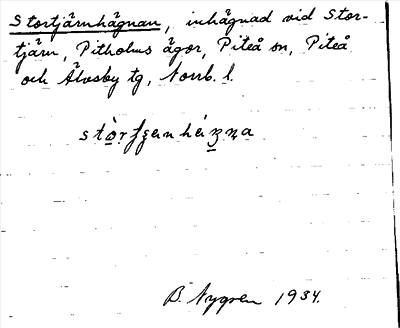 Stortjärnhägnan, inhägnad vid Stor-
tjärn, Pitholms ägor, Piteå sn, Piteå
och Älvsby tg, Norrb. l.
B. Nygren 1934.